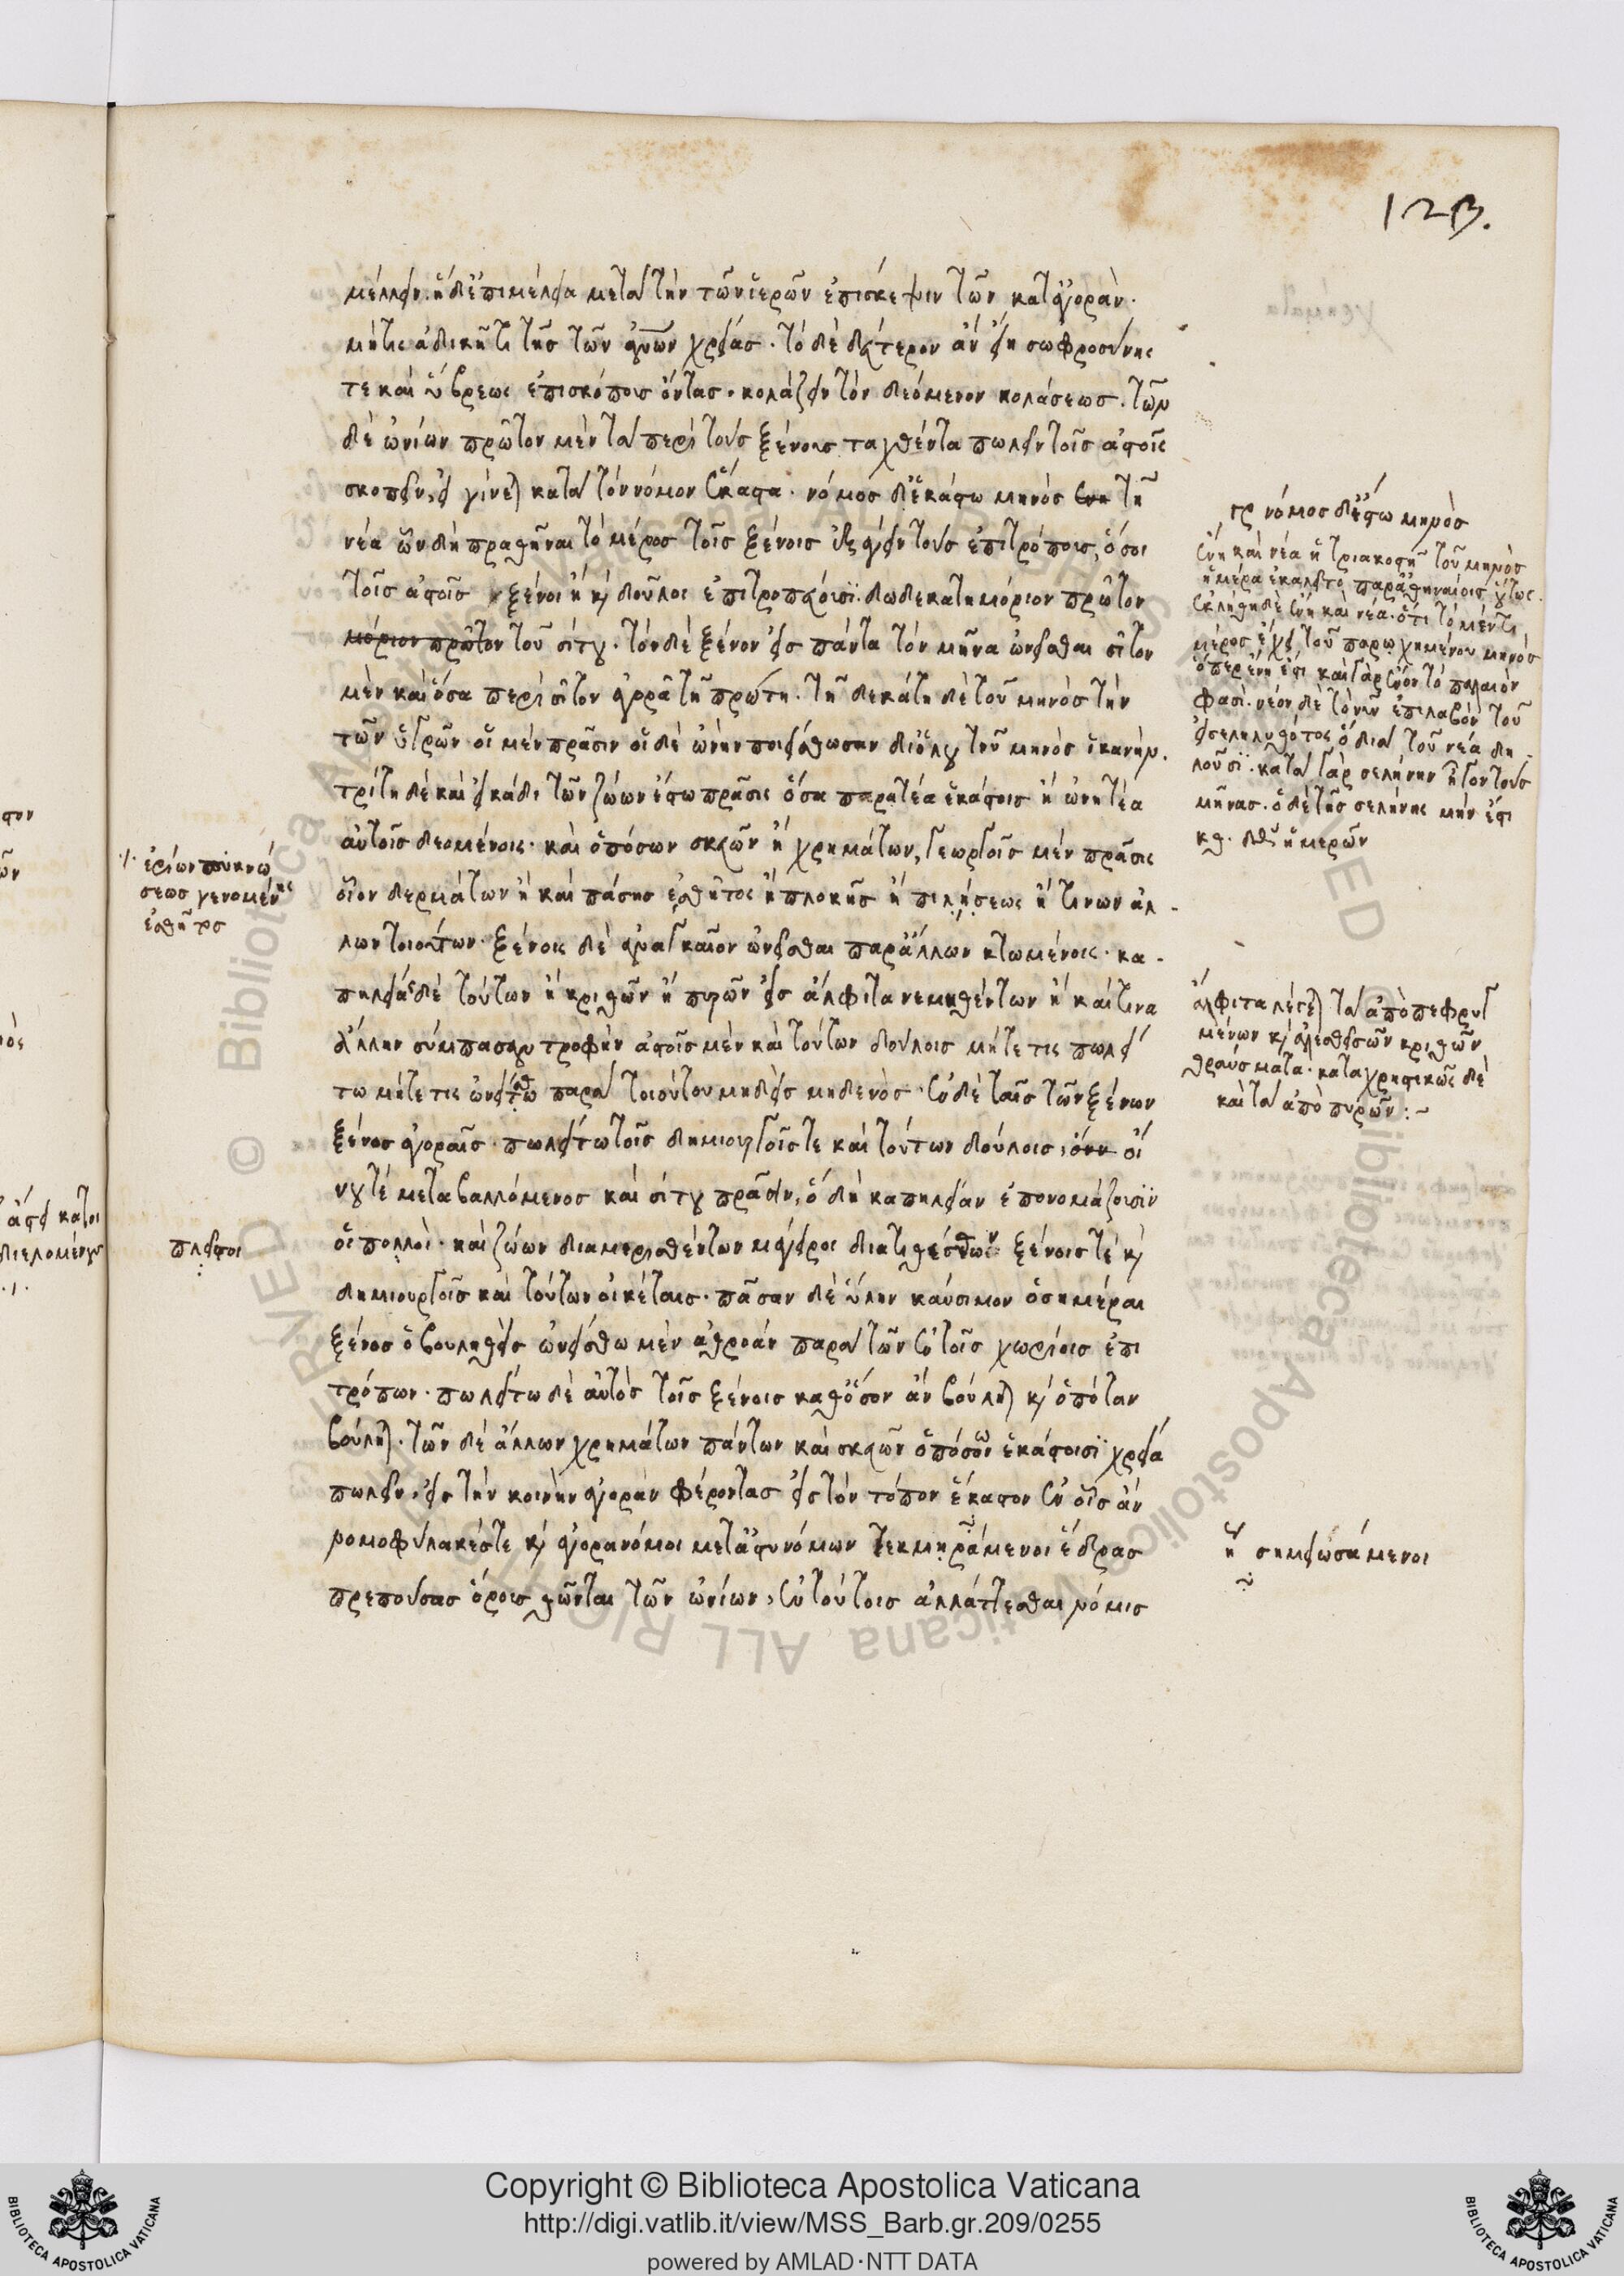 123.
μέλλειν. ἡ δ' ἐπιμέλεια μετὰ τὴν τῶν ἱερῶν ἐπίσκεψιν τῶν κατ' ἀγοράν.
μήτις ἀδικῇ τι τῆς τῶν ἀνων χρείας. τὸ δὲ δεύτερον ἂν εἴη σωφροσύνης
τε καὶ ὕβρεως ἐπισκόπους ὄντας. κολάζειν τὸν δεόμενον κολάσεως. τῶν
δὲ ὠνίων πρῶτον μὲν τὰ περὶ τοὺς ξένους ταχθέντα πωλεῖν τοῖς ἀστοῖς
σκοπεῖν, εἰ γίνεται κατὰ τὸν νόμον ἕκαστα. νόμος δ' ἑκάστω μηνὸς ἔνη τῇ
νέα ὧν δὴ πραθῆναι τὸ μέρος τοῖς ξένοις ἐξάγειν τοὺς ἐπιτρόπους, ὅσοι
τοῖς ἀστοῖς ξένοι ἢ καὶ δοῦλοι ἐπιτροπεύουσι. δωδεκατημόριον πρῶτον
μόριον πρῶτον τοῦ σίτου. τὸν δὲ ξένον εἰς πάντα τὸν μῆνα ὠνεῖσθαι σῖτον
μὲν καὶ ὅσα περὶ σῖτον ἀγορᾷ τῇ πρώτη. τῇ δεκάτη δὲ τοῦ μηνὸς τὴν
τῶν ὑγρῶν οἱ μὲν πρᾶσιν οἱ δὲ ὠνὴν ποιείσθωσαν δι' ὅλου τοῦ μηνὸς ἱκανήν.
τρίτη δὲ καὶ εἰκάδι τῶν ζώων ἔστω πρᾶσις ὅσα πρατέα ἑκάστοις ἢ ὠνητέα
αὐτοῖς δεομένοις. καὶ ὁπόσων σκευῶν ἢ χρημάτων, γεωργοῖς μὲν πρᾶσις
οἷον δερμάτων ἢ καὶ πάσης ἐσθῆτος ἢ πλοκῆς ἢ πιλήσεως ἤ τινων ἀλ-
λων τοιούτων. ξένοις δὲ ἀναγκαῖον ὠνεῖσθαι παρ' ἄλλων κτωμένοις. κα-
πηλείας δὲ τούτων ἢ κριθῶν ἢ πυρῶν εἰς ἄλφιτα νεμηθέντων ἢ καί τινα
ἄλλην σύμπασαν τροφὴν ἀστοῖς μὲν καὶ τούτων δούλοις μήτε τις πωλεί
τω μήτε τις ὠνείσθω παρὰ τοιούτου μηδεὶς μηδενός. ἐν δὲ ταῖς τῶν ξένων
ξένος ἀγοραῖς. πωλείτω τοῖς δημιουργοῖς τε καὶ τούτων δούλοις, οἴ
νου τε μεταβαλλόμενος καὶ σίτου πρᾶσιν, ὃ δὴ καπηλείαν ἐπονομάζουσιν
οἱ πολλοί. καὶ ζώων διαμερισθέντων μάγειροι διατιθέσθων ξένοις τε καὶ
δημιουργοῖς καὶ τούτων οἰκέταις. πᾶσαν δὲ ὕλην καύσιμον ὁσημέραι
ξένος ὁ βουληθεὶς ὠνείσθω μὲν ἀθρόαν παρὰ τῶν ἐν τοῖς χωρίοις ἐπι
τρόπων. πωλείτω δὲ αὐτὸς τοῖς ξένοις καθ' ὅσον ἂν βούληται καὶ ὁπόταν
βούληται. τῶν δὲ ἄλλων χρημάτων πάντων καὶ σκευῶν ὁπόσων ἑκάστοισι χρεία
πωλεῖν, εἰς τὴν κοινὴν ἀγορὰν φέροντας εἰς τὸν τόπον ἕκαστον ἐν οἷς ἂν
νομοφύλακές τε καὶ ἀγορανόμοι μετ' ἀστυνόμων τεκμηράμενοι ἕδρας
πρεπούσας ὅροις θῶνται τῶν ὠνίων, ἐν τούτοις ἀλλάττεσθαι νόμισ
νόμος δ' ἔστω μηνὸς
ἔνη καὶ νέα ἡ τριακοστὴ τοῦ μηνὸς
ἡμέρα ἐκαλεῖτο παρ' ἀθηναίοις οὕτως.
ἐκλήθη δὲ ἔνη καὶ νέα. ὅτι τὸ μέν τι
μέρος εἶχε τοῦ παρῳχημένου μηνὸς
ὅπερ ἔνη ἐστι καὶ γὰρ ἔνον τὸ παλαιόν
φασι. νέον δὲ τὸ νῦν ἐπιλαβὸν τοῦ
εἰσεληλυθότος ὃ διὰ τοῦ νέα δη-
λοῦσι. κατὰ γὰρ σελήνην ἦγον τοὺς
μῆνας. ὁ δὲ τῆς σελήνης μήν ἐστι
κθ. ἡμερῶν
ἐρίων πυκνώ
σεως γενομένης
ἐσθῆτος
ἄλφιτα λέγεται τὰ ἀπὸ πεφρυγ
μένων καὶ ἀλεσθεισῶν κριθῶν
θραύσματα. καταχρηστικῶς δὲ
καὶ τὰ ἀπὸ πυρῶν :~
πλεῖστοι
ἢ σημειωσάμενοι
Copyright © Biblioteca Apostolica Vaticana
http://digi.vatlib.it/view/MSS_Barb.gr.209/0255
powered by AMLAD·NTT DATA
BIBLIOTECA APOSTOLICA VATICANA
BIBLIOTECA APOSTOLICA VATICANA